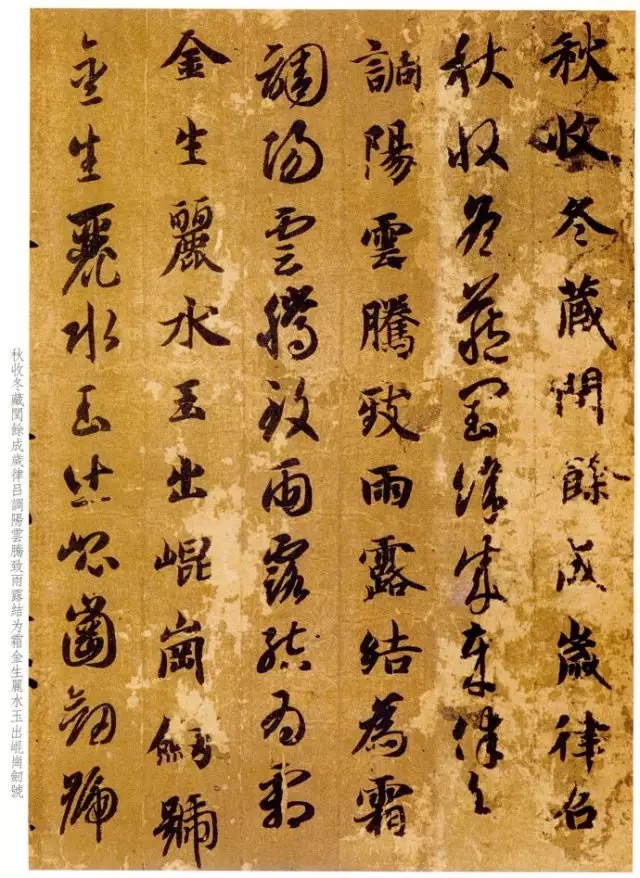 秋收冬藏閏餘成歲律呂
秋收冬藏閏餘成歲律呂
調陽雲騰致雨露結為霜
調陽雲騰致雨露結為霜
金生麗水玉出崐崗劒號
金生麗水玉出崐崗劒號
秋收冬藏閏餘成歲律吕調陽雲騰致雨露结为霜金生麗水玉出崐崗劒號